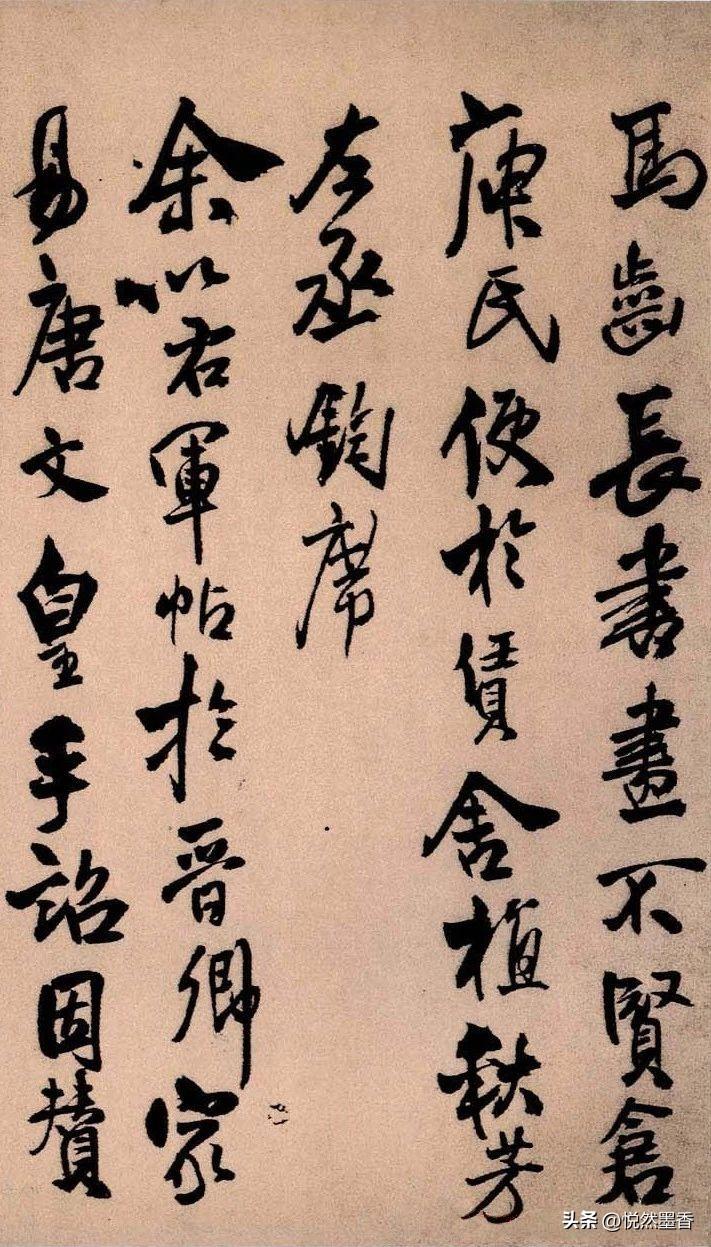 馬齒長書畫不賢倉
庾氏便於賃舍植秋芳
左丞鈞席
余以右軍帖於晉卿家
易唐文皇手詔因贊
头条 @悦然墨香